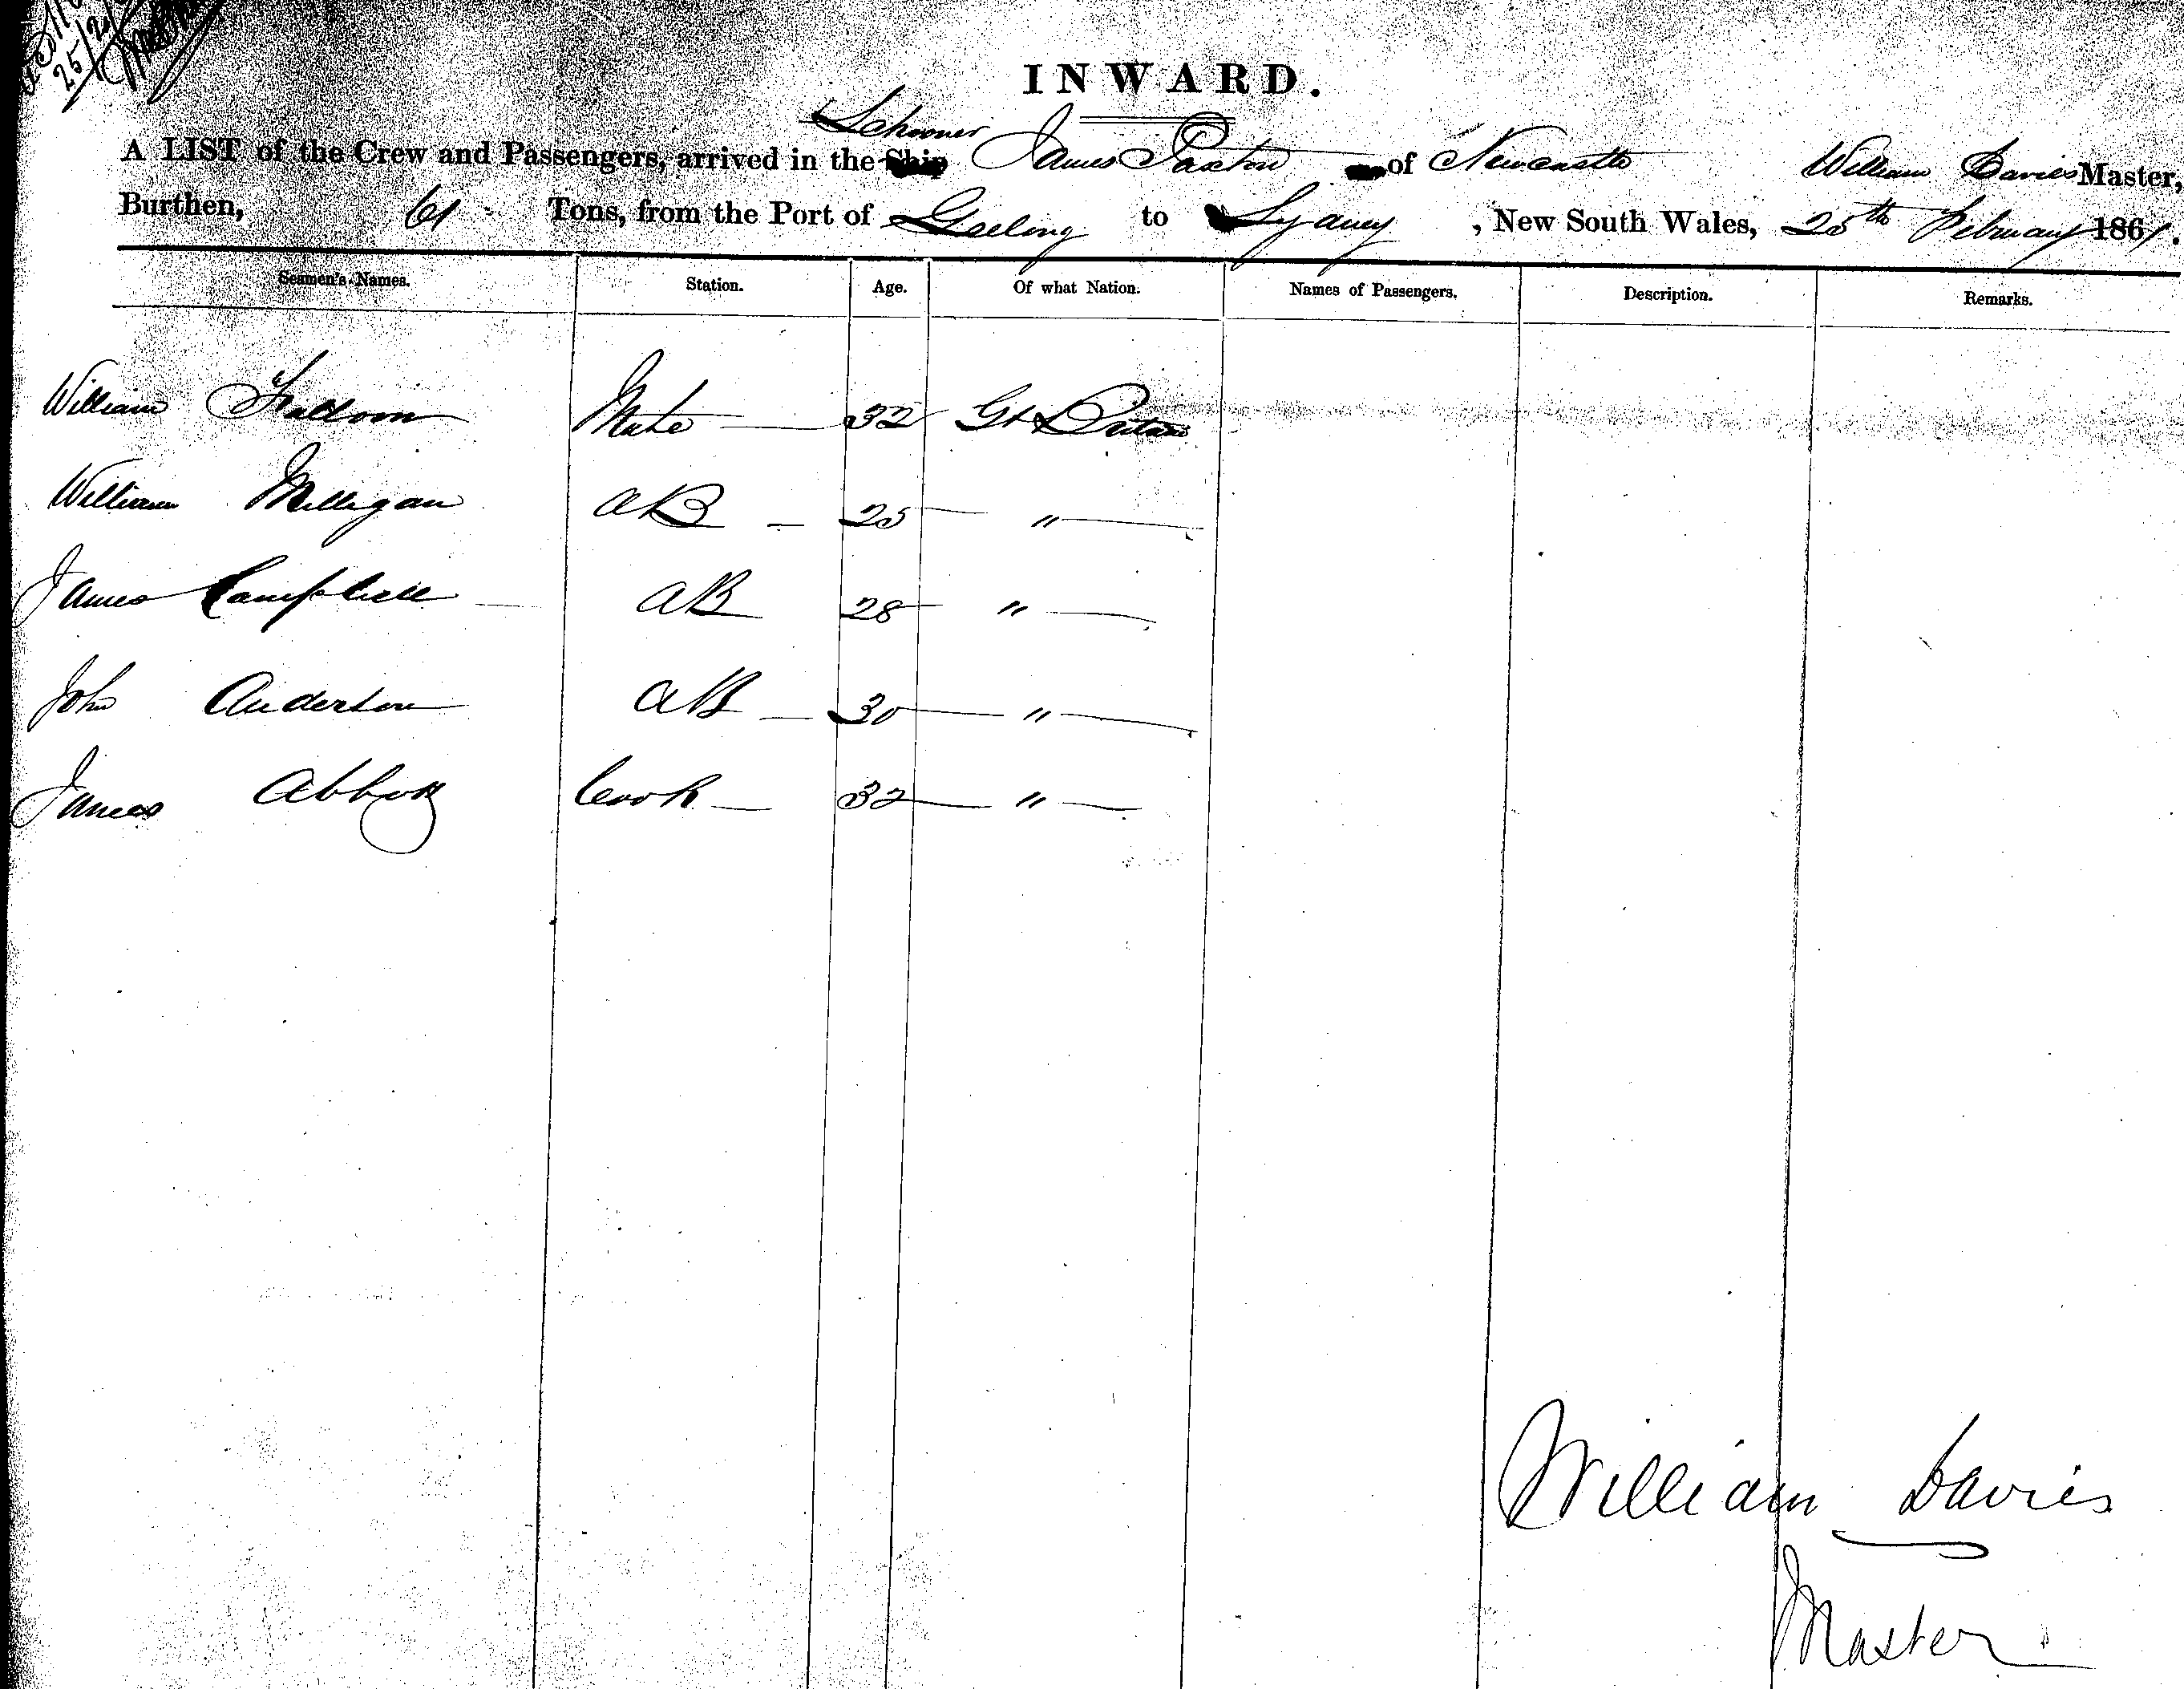 25/2/
INWARD.
Schooner
A LIST of the Crew and Passengers, arrived in the Ship James Paxton of Newcastle William Davies Master,
Burthen, 61 Tons, from the Port of Geelong to Sydney, New South Wales, 25th February 1861.
Seamen's Names. Station. Age. Of what Nation. Names of Passengers. Description. Remarks.
William Mate 32 Gt Britain
William Milligan AB 25 "
James Campbell AB 28 "
John Anderson AB 30 "
James Abbott Cook 32 "
William Davies
Master